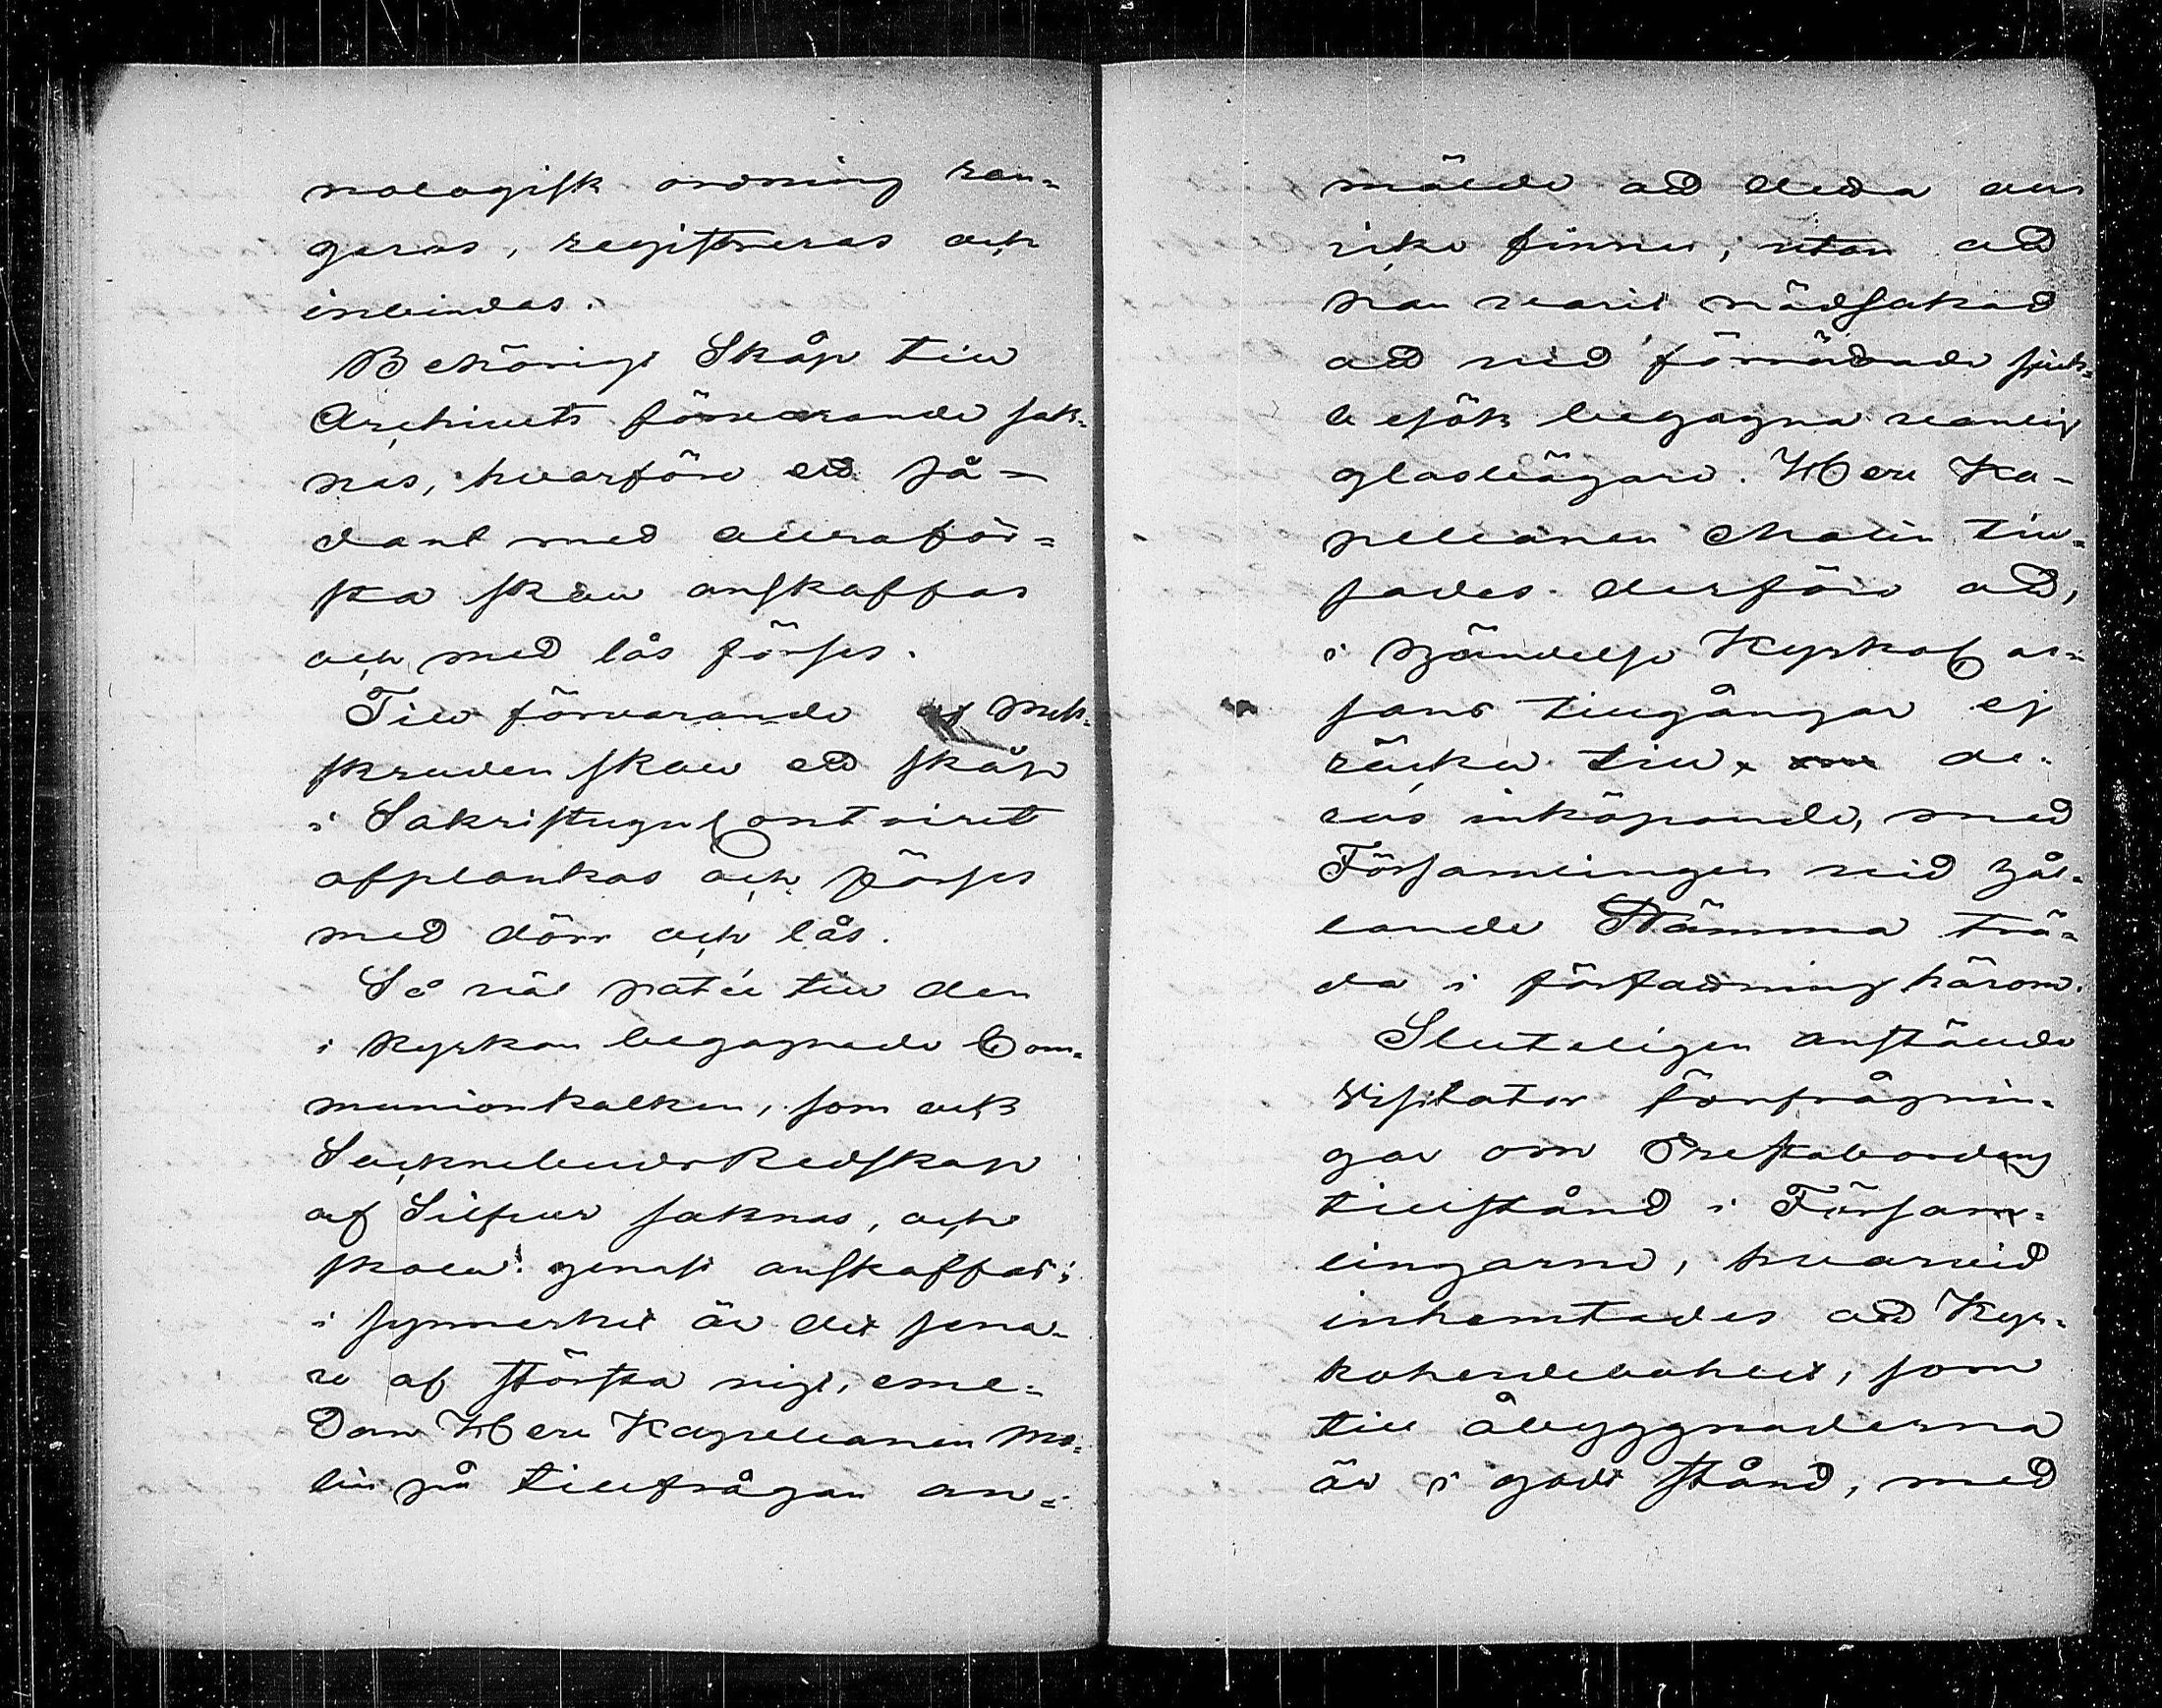 nologisk ordning ran-
geras, registreras och
inbindas.
Behörigt Skåp till
Archivets förvarande sak-
nas, hvarföre ett så-
dant med alraför-
sta skall anskaffas
och med lås förses.
Till förvarande af Mess-
skruden skall ett skåp
i Sakristugukontoiret
afplankas och förses
med dörr och lås.
Så väl patén till den
i Kyrkan begagnade Com-
munionkalken, som ock
Socknebuds Redskap
af Silfver saknas, och
skall genast anskaffas;
i synnerhet är det sena-
re af största vigt, eme-
dan Herr Kapellanen Ma-
lin på tillfrågan an-
mälde att detta alls
icke finnes, utan att
han varit nödsakad
att vid förrättande sjuk-
besök begagna vanlig
glasbägare. Herr Ka-
pellanen Malin till-
sades derföre att,
i händelse Kyrkokas-
sans tillgångar ej
räcka till de-
ras inköpande, med
Församlingen vid hål-
lande Stämma trä-
da i författning härom.
Sluteligen anstälde
Visitator förfrågnin-
gar om Prestabordens
tillstånd i Försam-
lingarne, hvarvid
inhemtades att Kyr-
koherdebohlet, som
till åbyggnaderna
är i godt stånd, med